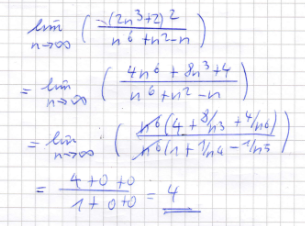 lim n→∞ ( (2n³+2)² / n⁶+n²-n )
= lim n→∞ ( 4n⁶ + 8n³+4 / n⁶+n²-n )
= lim n→∞ ( n⁶(4+8/n3 + 4/n6) / n⁶(1+1/n4 - 1/n5) )
= 4+0+0 / 1+0+0 = 4